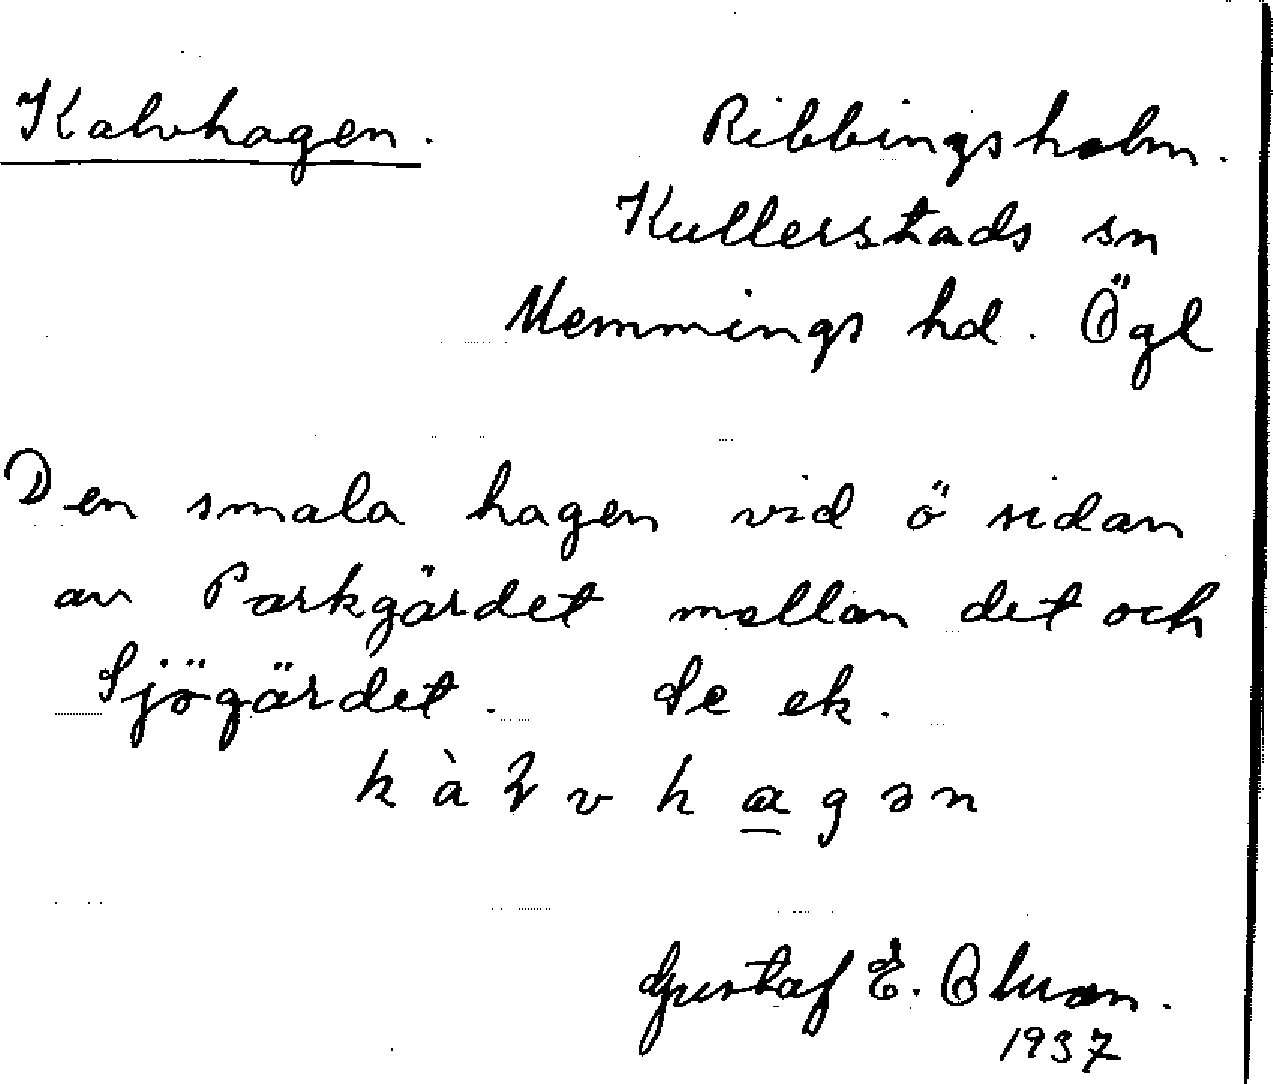 Kalvhagen. Ribbingsholm.
Kullerstads sn
Memmings hd. Ögl
Den smala hagen vid ö sidan
av Parkgärdet mellan det och
Sjögärdet. Se ek.
kàlvhagən
Gustaf E.
1937